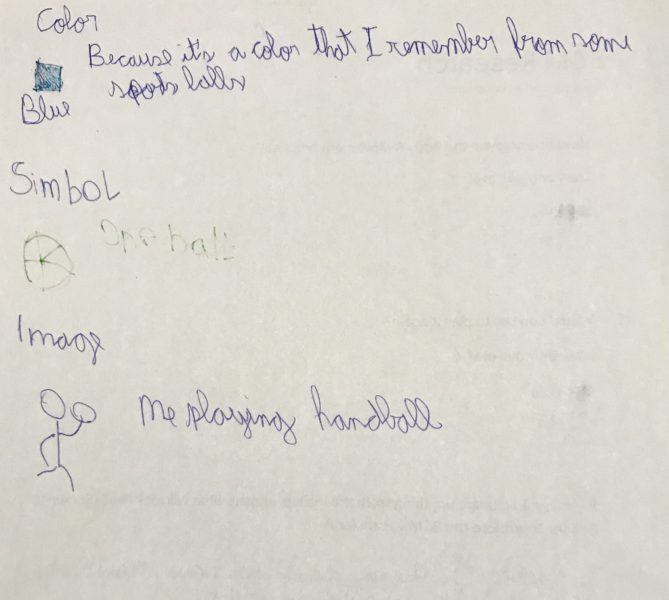 Color
Because it's a color that I remember from some
spots balls
Blue
Simbol
One ball
Image
Me playing handball